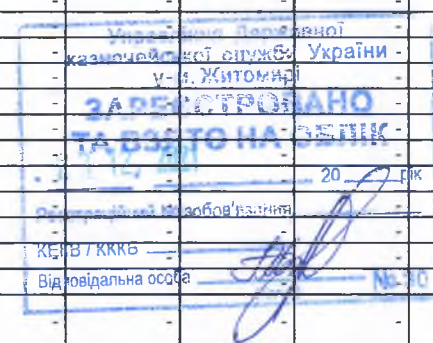 Управління Державної
казначейської служби України
у м. Житомирі
ЗАРЕЄСТРОВАНО
ТА ВЗЯТО НА ОБЛІК
20 рік
зобов'язання
КЕКВ / КККБ
Відповідальна особа